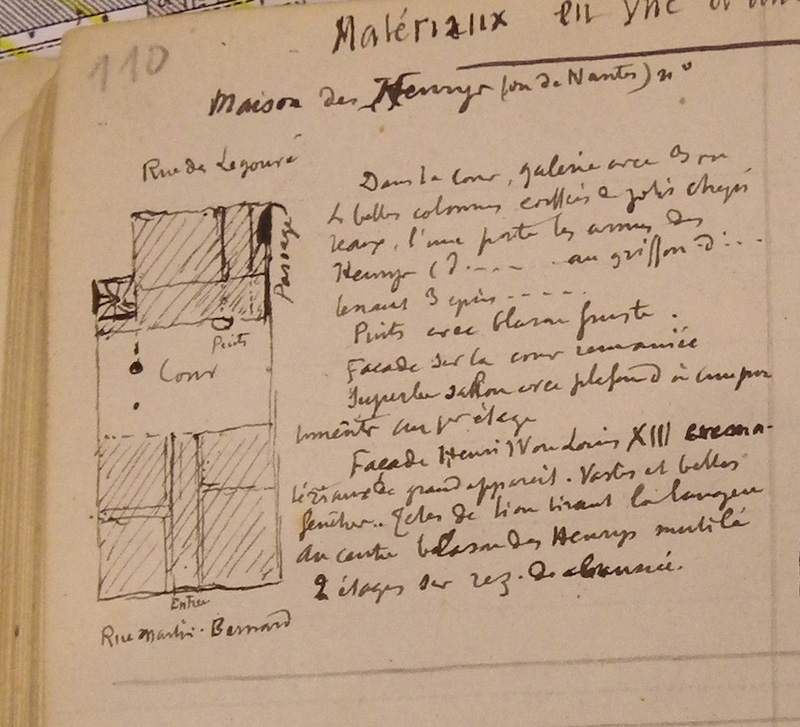 110
Matériaux en
Maison des Henrys (ou de Nantes) n°
Rue de Legouvé
Passage
Puits
Cour
Entrée
Rue Martin-Bernard
Dans la cour, galerie avec 3 ou
4 belles colonnes coiffées de jolis chapi
teaux, l'une porte les armes des
Henrys (d..... au griffon d...
tenant 3 épis.....
Puits avec blason fruste.
Façade sur la cour remaniée
Superbe salon avec plafond à compar
timents au 1er étage
Façade Henri IV ou Louis XIII
tériaux de grand appareil. Vastes et belles
fenêtres.. Têtes de lion tirant la langue
au centre blason des Henrys mutilé
2 étages sur rez-de-chaussée.